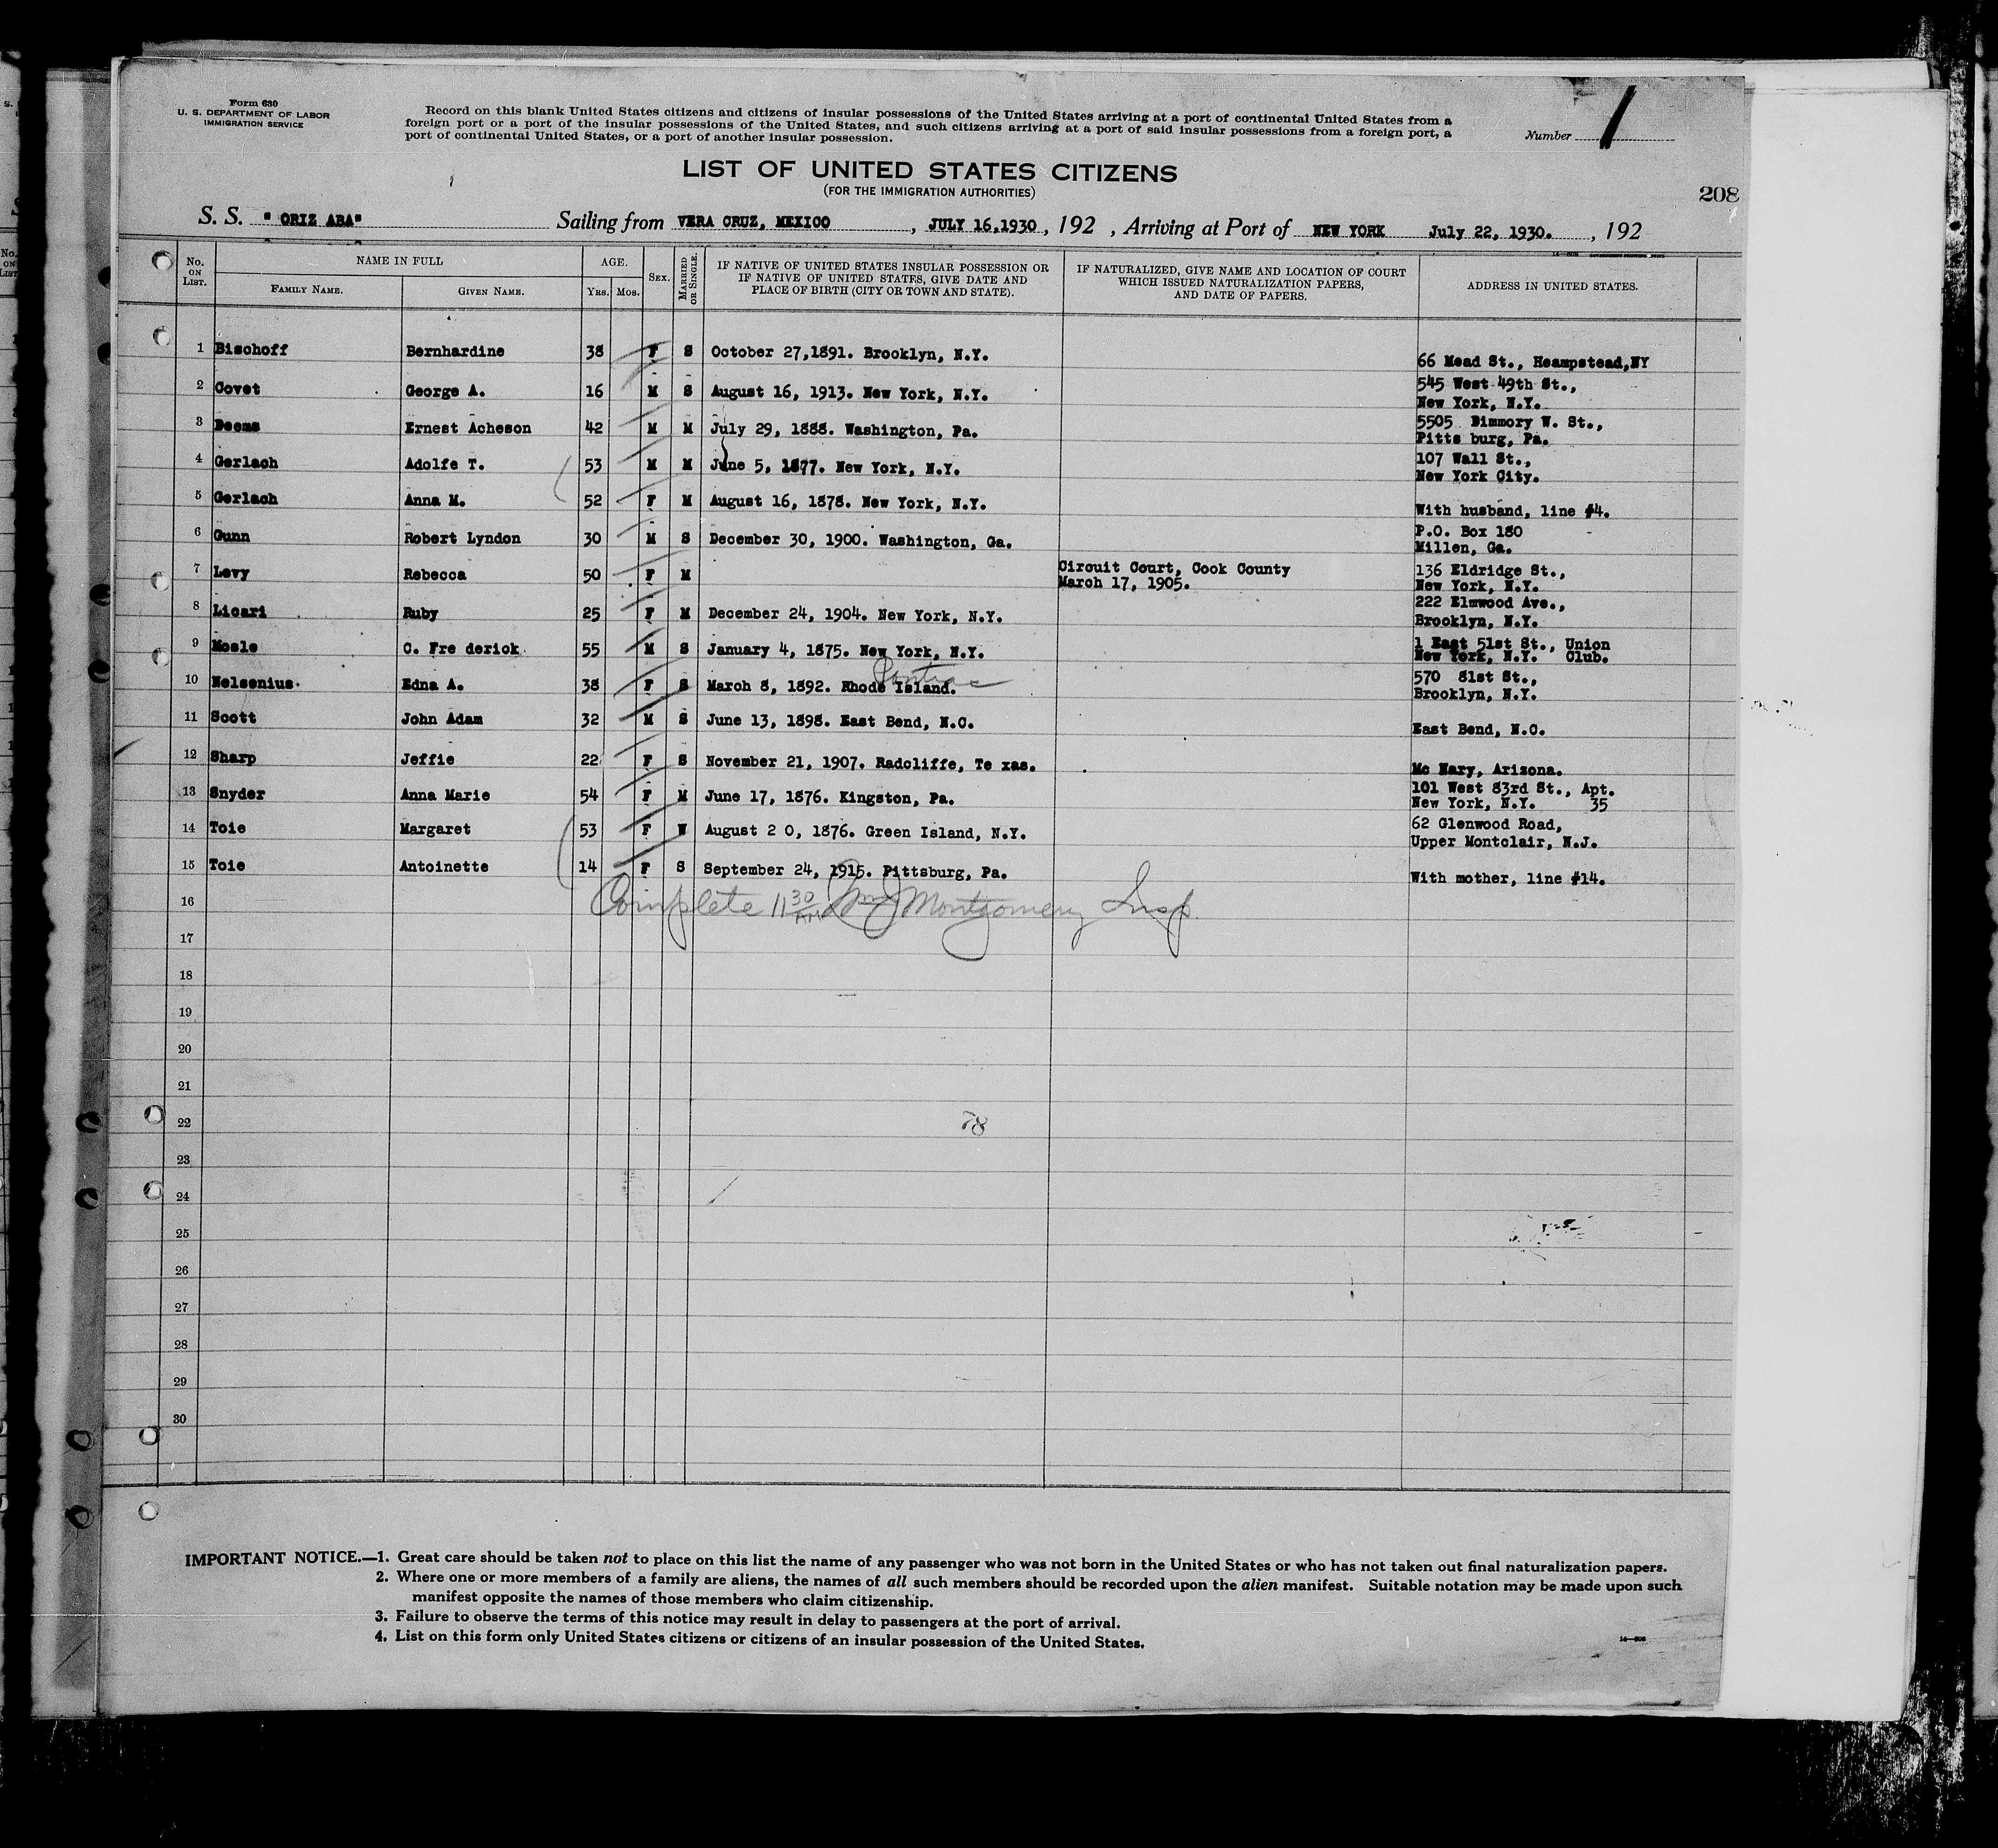 Form 630
U. S. DEPARTMENT OF LABOR
IMMIGRATION SERVICE
Record on this blank United States citizens and citizens of insular possessions of the United States arriving at a port of continental United States from a
foreign port or a port of the insular possessions of the United States, and such citizens arriving at a port of said insular possessions from a foreign port, a
port of continental United States, or a port of another insular possession.
Number 1
LIST OF UNITED STATES CITIZENS
(FOR THE IMMIGRATION AUTHORITIES)
208
S. S. " ORIZ ABA" Sailing from VERA CRUZ, MEXICO , JULY 16,1930 , 192 , Arriving at Port of NEW YORK July 22, 1930. , 192
No. ON LIST. NAME IN FULL FAMILY NAME. GIVEN NAME. AGE. Yrs. Mos. SEX. MARRIED OR SINGLE. IF NATIVE OF UNITED STATES INSULAR POSSESSION OR IF NATIVE OF UNITED STATES, GIVE DATE AND PLACE OF BIRTH (CITY OR TOWN AND STATE). IF NATURALIZED, GIVE NAME AND LOCATION OF COURT WHICH ISSUED NATURALIZATION PAPERS, AND DATE OF PAPERS. ADDRESS IN UNITED STATES.
1 Bischoff Bernhardine 38 F S October 27,1891. Brooklyn, N.Y. 66 Mead St., Heampstead,NY
2 Covet George A. 16 M S August 16, 1913. New York, N.Y. 545 West 49th St.,
New York, N.Y.
3 Deems Ernest Acheson 42 M M July 29, 1888. Washington, Pa. 5505 Dimmory W. St.,
Pitts burg, Pa.
4 Gerlach Adolfe T. 53 M M June 5, 1877. New York, N.Y. 107 Wall St.,
New York City.
5 Gerlach Anna M. 52 F M August 16, 1878. New York, N.Y. With husband, line #4.
6 Gunn Robert Lyndon 30 M S December 30, 1900. Washington, Ga. P.O. Box 180
Millen, Ga.
7 Levy Rebecca 50 F M Circuit Court, Cook County
March 17, 1905. 136 Eldridge St.,
New York, N.Y.
8 Licari Ruby 25 F M December 24, 1904. New York, N.Y. 222 Elmwood Ave.,
Brooklyn, N.Y.
9 Mosle C. Fre derick 55 M S January 4, 1875. New York, N.Y. 1 East 51st St., Union
New York, N.Y. Club.
Pontiac
10 Nelsenius Edna A. 38 F S March 8, 1892. Rhode Island. 570 81st St.,
Brooklyn, N.Y.
11 Scott John Adam 32 M S June 13, 1898. East Bend, N.C. East Bend, N.C.
12 Sharp Jeffie 22 F S November 21, 1907. Radcliffe, Te xas. Mc Nary, Arizona.
13 Snyder Anna Marie 54 F M June 17, 1876. Kingston, Pa. 101 West 83rd St., Apt.
New York, N.Y. 35
14 Toie Margaret 53 F W August 2 0, 1876. Green Island, N.Y. 62 Glenwood Road,
Upper Montclair, N.J.
15 Toie Antoinette 14 F S September 24, 1915. Pittsburg, Pa. With mother, line #14.
16 Complete 11 30 AM Wm J Montgomery Insp.
17
18
19
20
21
22 78
23
24
25
26
27
28
29
30
IMPORTANT NOTICE.—1. Great care should be taken not to place on this list the name of any passenger who was not born in the United States or who has not taken out final naturalization papers.
2. Where one or more members of a family are aliens, the names of all such members should be recorded upon the alien manifest. Suitable notation may be made upon such
manifest opposite the names of those members who claim citizenship.
3. Failure to observe the terms of this notice may result in delay to passengers at the port of arrival.
4. List on this form only United States citizens or citizens of an insular possession of the United States.